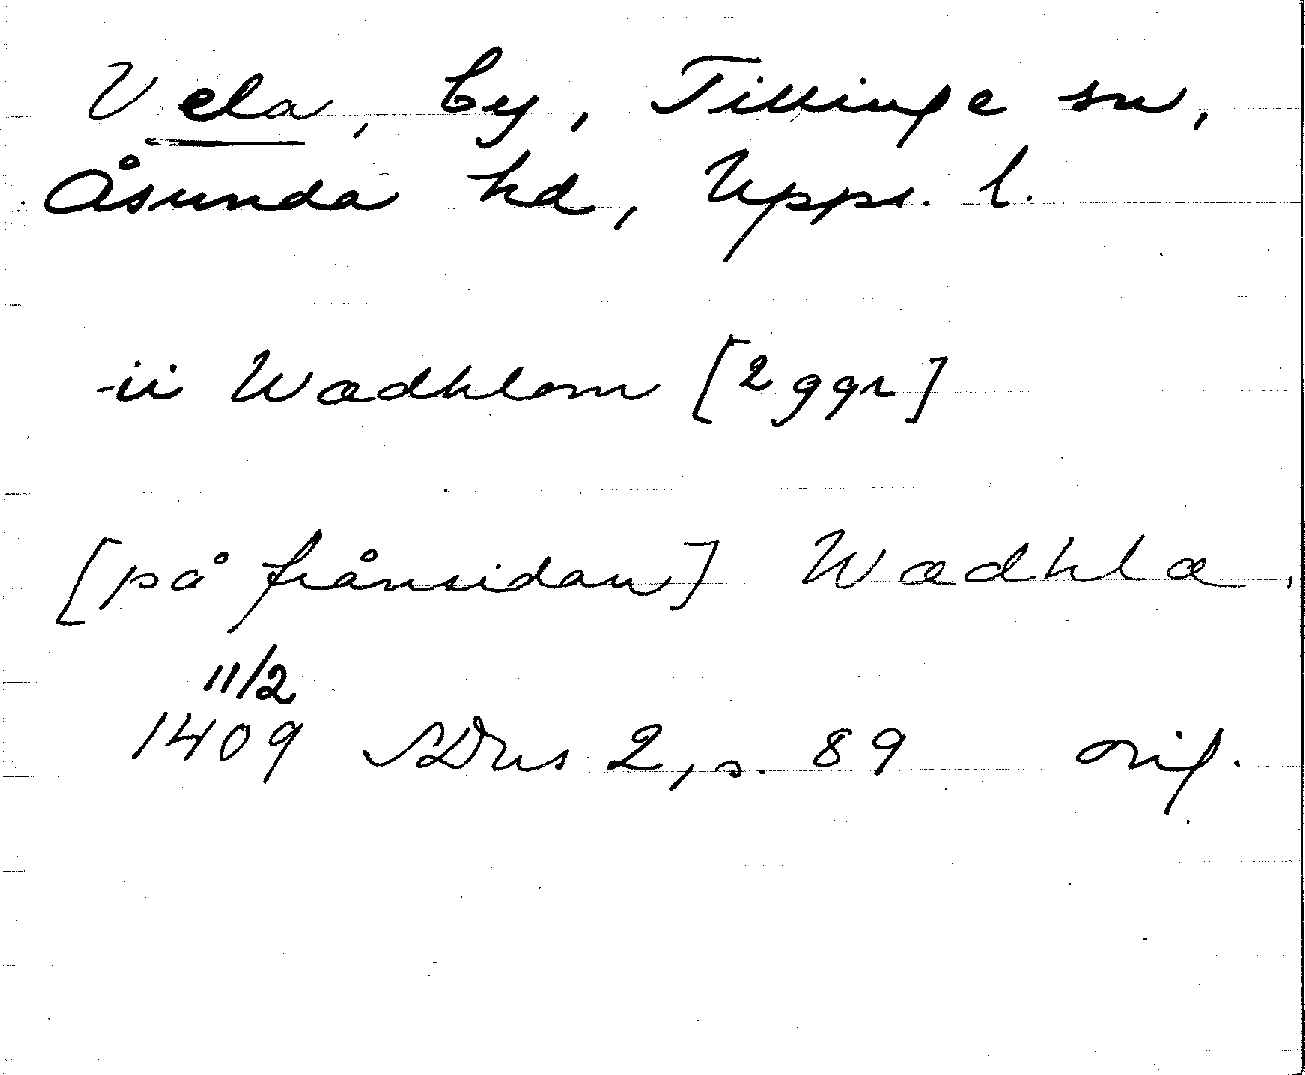 Vela, by, Tillinge sn,
Åsunda hd, Upps. l.
-ii Wædhlom [2 ggr]
[på frånsidan] Wædhla.
11/2
1409 SDns 2, s. 89 orig.